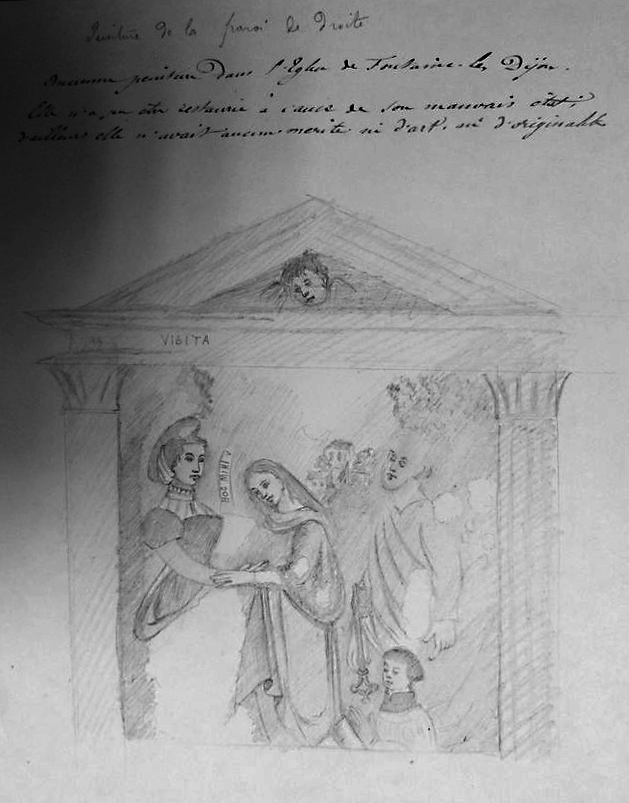 Peinture de la paroi de Droite
Ancienne peinture Dans l'Eglise de Fontaine-les Dijon.
Elle n'a pu être restaurée à cause de son mauvais état
d'ailleurs elle n'avait aucun merite ni d'art, ni d'originalité
VISITA
HOC MIHI